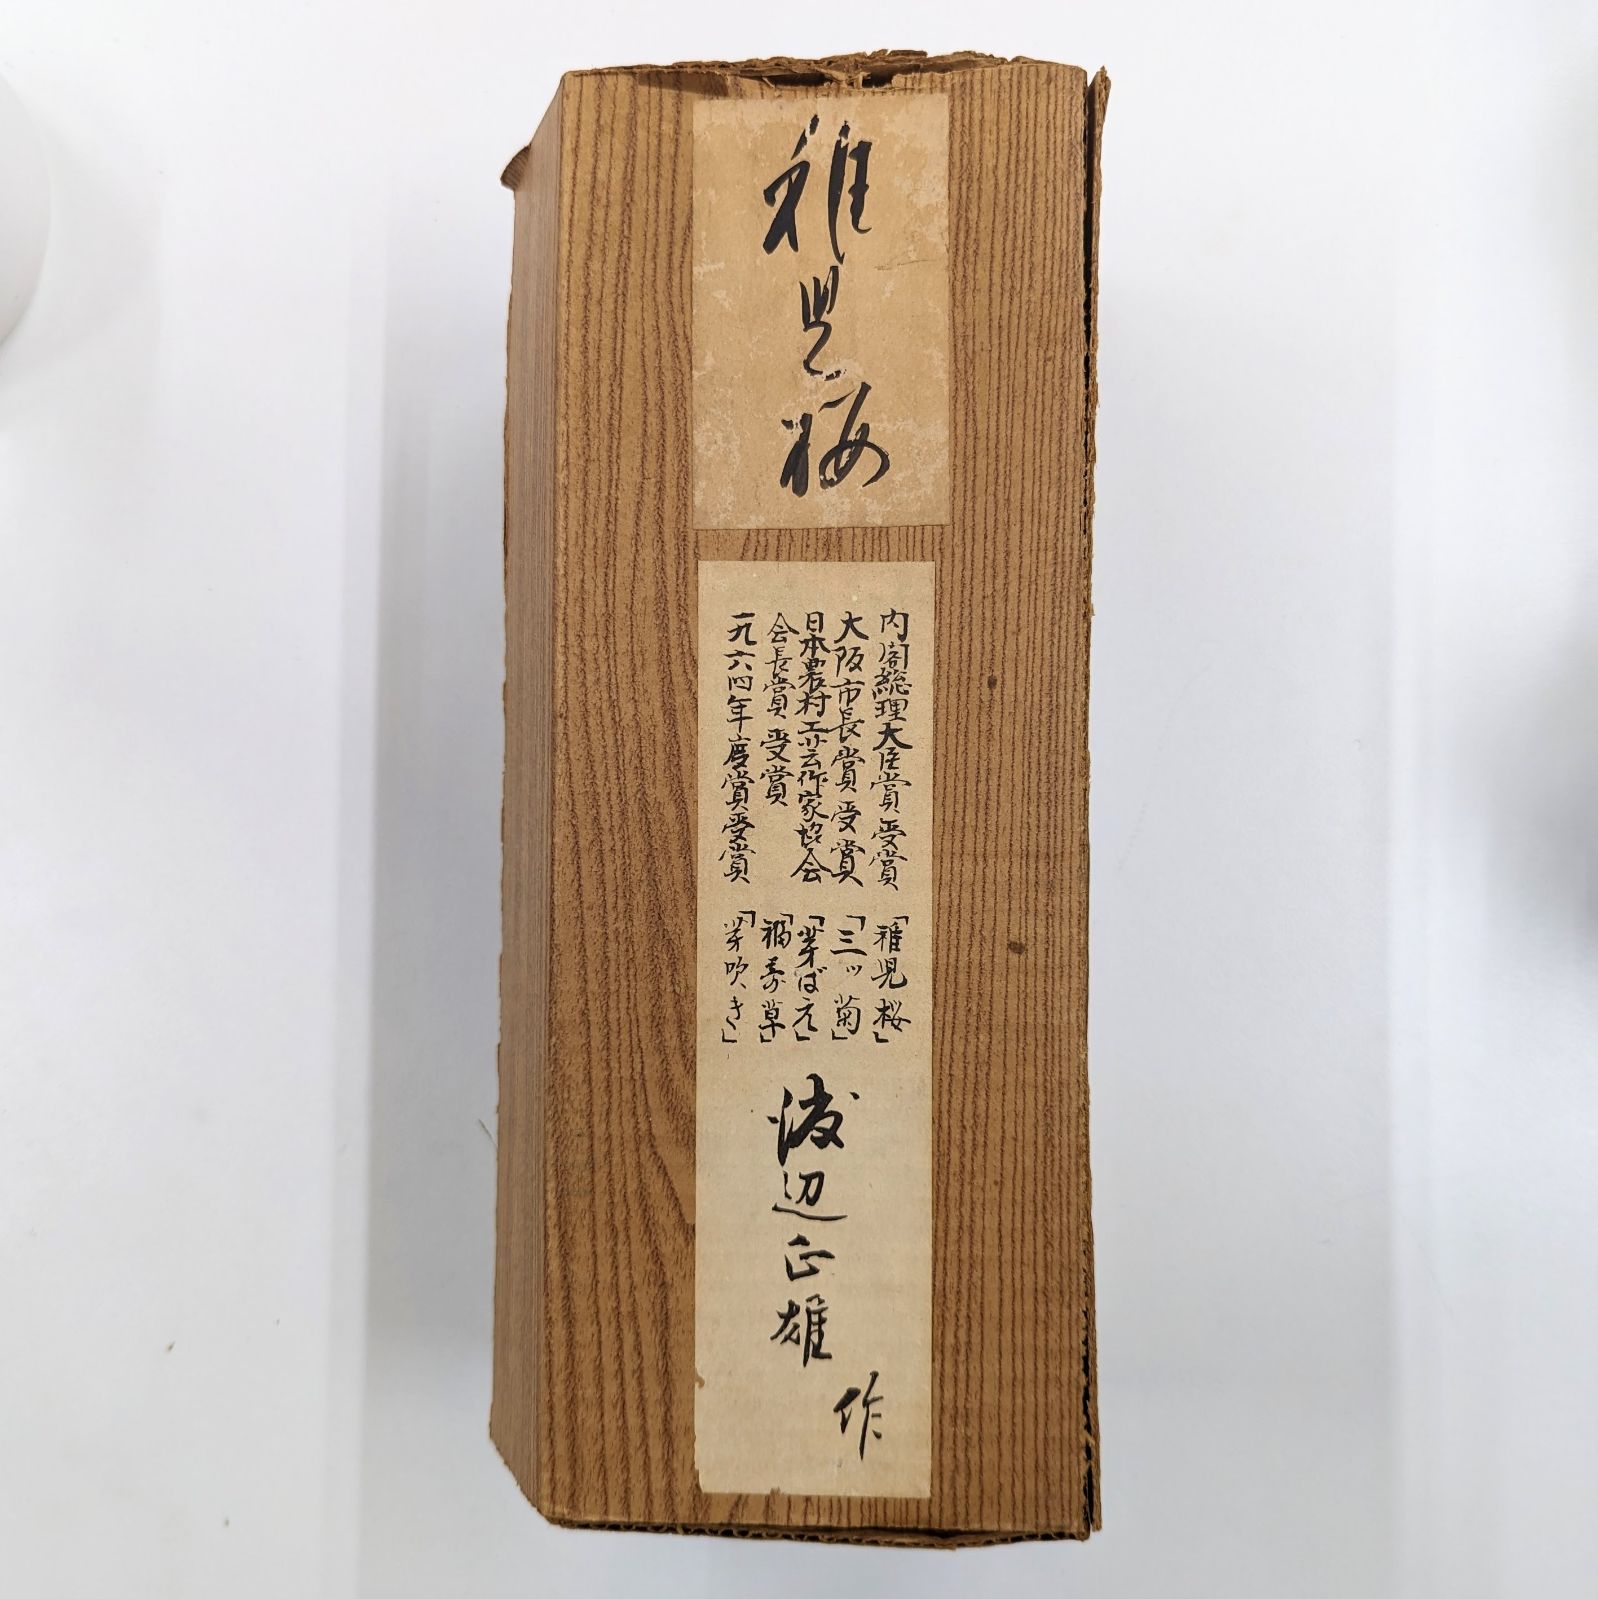 稚児桜
内閣総理大臣賞受賞「稚児桜」
大阪市長賞受賞「三ッ菊」
日本農村工芸作家協会「芽ばえ」
会長賞受賞「福寿草」
一九六四年度賞受賞「芽吹き」
渡辺正雄
作